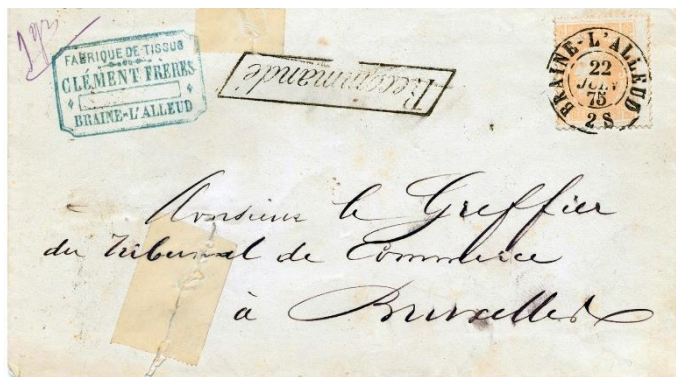 193
FABRIQUE DE TISSUS
CLÉMENT FRERES
BRAINE-L'ALLEUD
Recommandé
BRAINE-L'ALLEUD
22
JUIN
75
2 S
Monsieur le Greffier
du Tribunal de Commerce
à Bruxelles